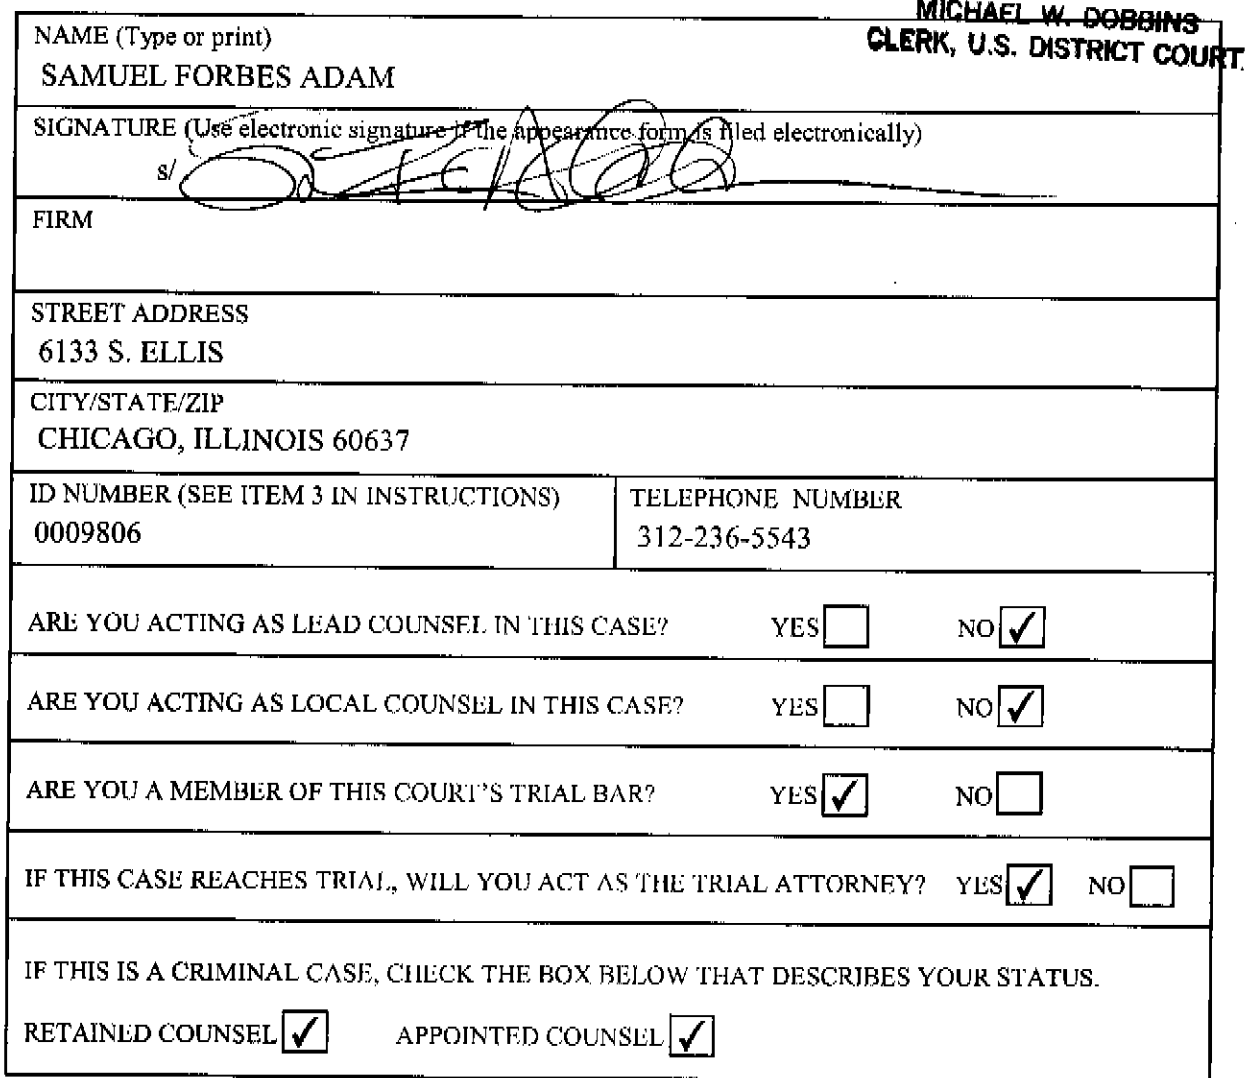 MICHAEL W. DOBBINS
CLERK, U.S. DISTRICT COURT
NAME (Type or print)
SAMUEL FORBES ADAM
SIGNATURE (Use electronic signature if the appearance form is filed electronically)
s/
FIRM
STREET ADDRESS
6133 S. ELLIS
CITY/STATE/ZIP
CHICAGO, ILLINOIS 60637
ID NUMBER (SEE ITEM 3 IN INSTRUCTIONS)
0009806
TELEPHONE NUMBER
312-236-5543
ARE YOU ACTING AS LEAD COUNSEL IN THIS CASE? YES NO ✓
ARE YOU ACTING AS LOCAL COUNSEL IN THIS CASE? YES NO ✓
ARE YOU A MEMBER OF THIS COURT'S TRIAL BAR? YES ✓ NO
IF THIS CASE REACHES TRIAL, WILL YOU ACT AS THE TRIAL ATTORNEY? YES ✓ NO
IF THIS IS A CRIMINAL CASE, CHECK THE BOX BELOW THAT DESCRIBES YOUR STATUS.
RETAINED COUNSEL ✓ APPOINTED COUNSEL ✓